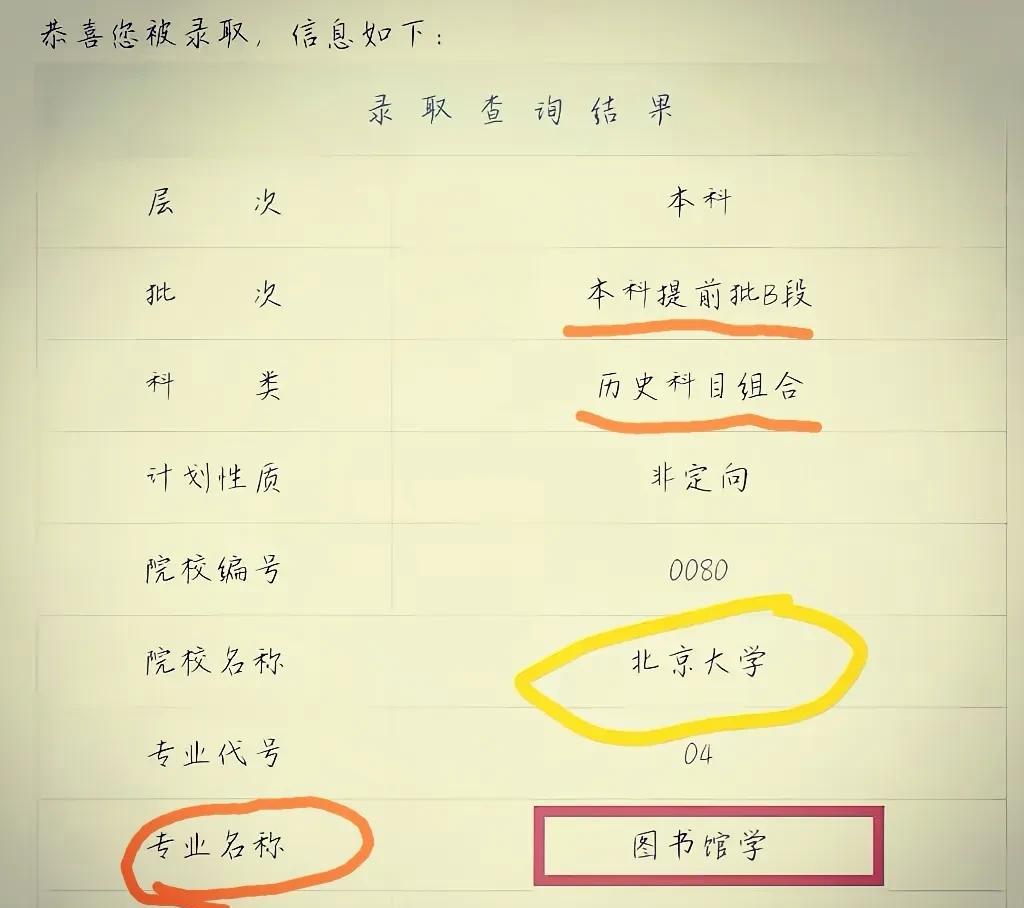 恭喜您被录取，信息如下：
录取查询结果
层次 本科
批次 本科提前批B段
科类 历史科目组合
计划性质 非定向
院校编号 0080
院校名称 北京大学
专业代号 04
专业名称 图书馆学